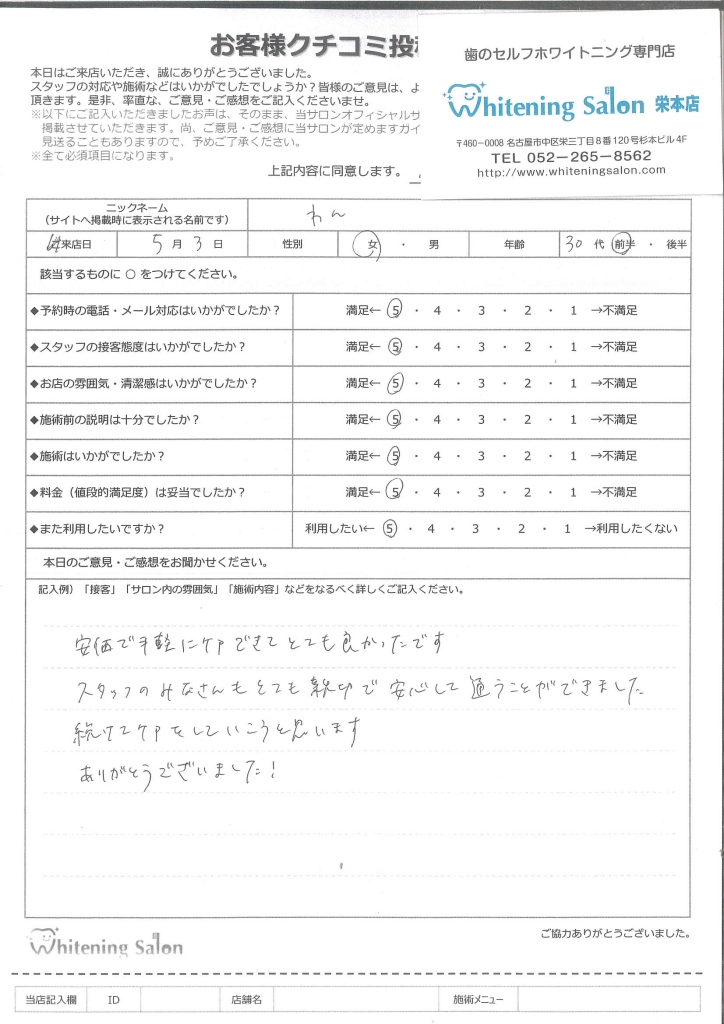 お客様クチコミ投
本日はご来店いただき、誠にありがとうございました。
スタッフの対応や施術などはいかがでしたでしょうか？皆様のご意見は、よ
頂きます。是非、率直な、ご意見・ご感想をご記入くださいませ。
※以下にご記入いただきましたお声は、そのまま、当サロンオフィシャルサ
掲載させていただきます。尚、ご意見・ご感想に当サロンが定めますガイ
見送ることもありますので、予めご了承ください。
※全て必須項目になります。
上記内容に同意します。
歯のセルフホワイトニング専門店
Whitening Salon 栄本店
〒460-0008 名古屋市中区栄三丁目8番120号杉本ビル4F
TEL 052-265-8562
http://www.whiteningsalon.com
ニックネーム
(サイトへ掲載時に表示される名前です)
わん
来店日 5 月 3 日 性別 女 ・ 男 年齢 30 代 前半 ・ 後半
該当するものに ○ をつけてください。
◆予約時の電話・メール対応はいかがでしたか？ 満足← 5 ・ 4 ・ 3 ・ 2 ・ 1 →不満足
◆スタッフの接客態度はいかがでしたか？ 満足← 5 ・ 4 ・ 3 ・ 2 ・ 1 →不満足
◆お店の雰囲気・清潔感はいかがでしたか？ 満足← 5 ・ 4 ・ 3 ・ 2 ・ 1 →不満足
◆施術前の説明は十分でしたか？ 満足← 5 ・ 4 ・ 3 ・ 2 ・ 1 →不満足
◆施術はいかがでしたか？ 満足← 5 ・ 4 ・ 3 ・ 2 ・ 1 →不満足
◆料金（値段的満足度）は妥当でしたか？ 満足← 5 ・ 4 ・ 3 ・ 2 ・ 1 →不満足
◆また利用したいですか？ 利用したい← 5 ・ 4 ・ 3 ・ 2 ・ 1 →利用したくない
本日のご意見・ご感想をお聞かせください。
記入例）「接客」「サロン内の雰囲気」「施術内容」などをなるべく詳しくご記入ください。
安価で手軽にケアできてとても良かったです
スタッフのみなさんもとても親切で安心して通うことができました
続けてケアをしていこうと思います
ありがとうございました!
Whitening Salon
ご協力ありがとうございました。
当店記入欄 ID 店舗名 施術メニュー